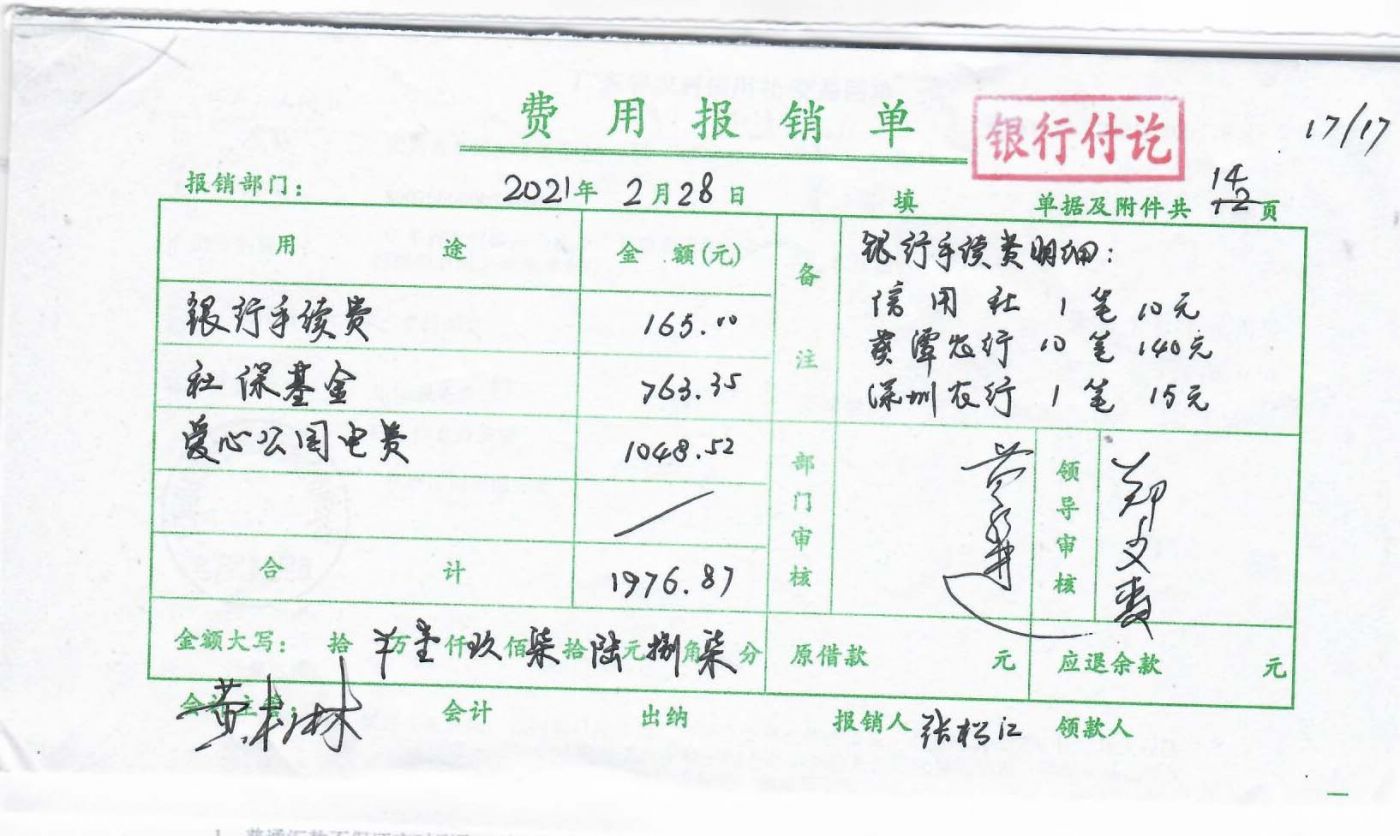 费用报销单
银行付讫
17/17
报销部门： 2021年 2月28日 填 单据及附件共 14 12 页
用途 金额(元) 备注
银行手续费明细：
信用社 1笔 10元
银行手续费 165.00
葵潭农行 10笔 140元
社保基金 763.35
深圳农行 1笔 15元
爱心公园电费 1048.52
部门审核 领导审核
合计 1976.87
金额大写： 拾 万壹仟玖佰柒拾陆元捌角柒分 原借款 元 应退余款 元
会计主管： 会计 出纳 报销人 张松江 领款人